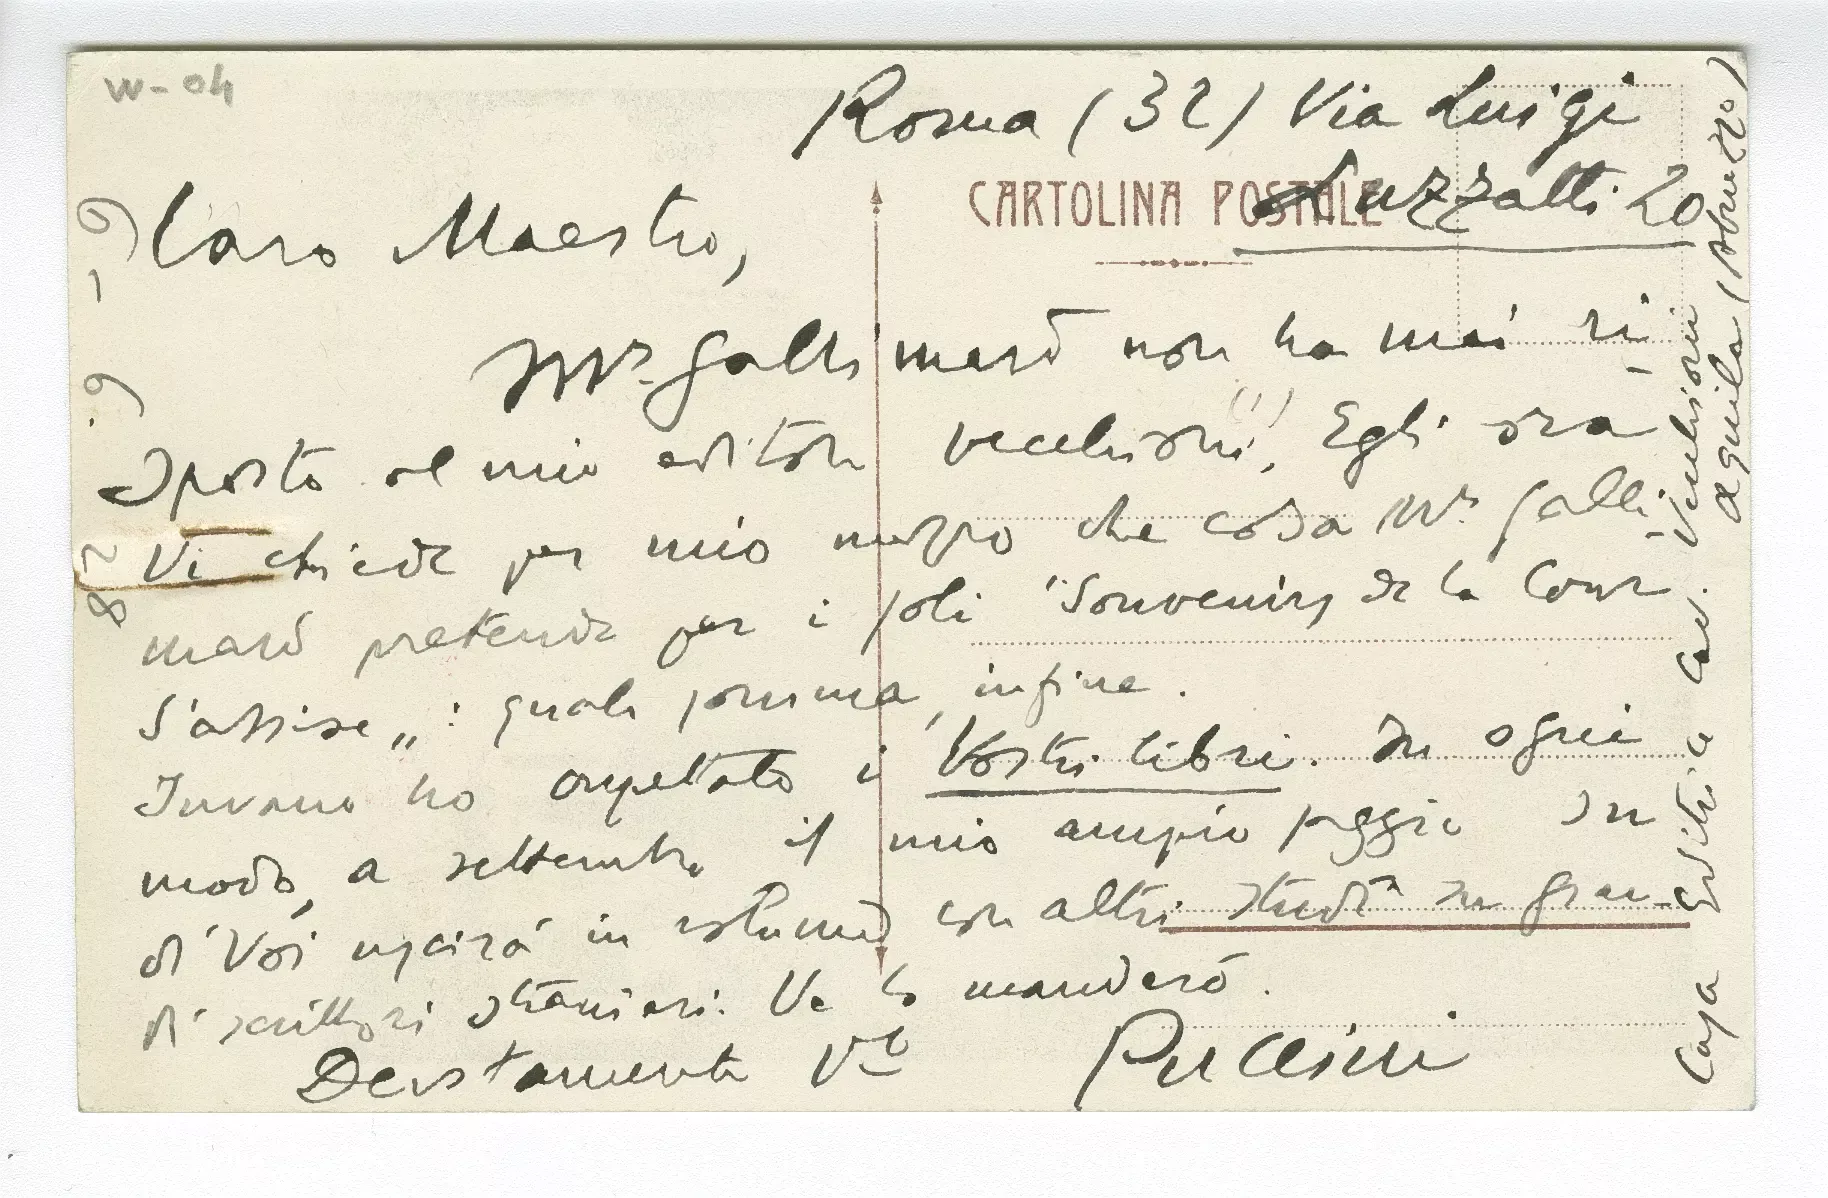 W-04
Roma (32) Via Luigi
Luzzatti 20
CARTOLINA POSTALE
Caro Maestro,
Mr. Gallimard non ha mai ri-
sposto al mio editore Vecchioni(!). Egli ora
Vi chiede per mio mezzo che cosa Mr. Galli-
mard pretende per i soli "Souvenirs de la Cour
d'assise„: quale somma, infine.
Invano ho aspettato i Vostri libri. In ogni
modo, a settembre il mio ampio saggio su
di Voi uscirà in volume con altri studi su gran-
di scrittori stranieri. Ve lo manderò.
Devotamente Vo
Puccini
Casa Editrice Cav. Vecchioni
Aquila (Abruzzo)